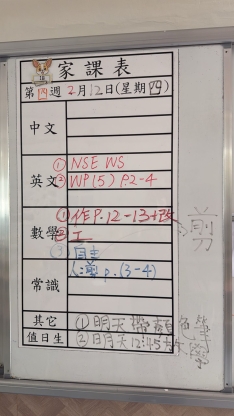 家課表
第四週 2月12日(星期四)
中文
英文
① NSE WS
② WP(5) P.2-4
數學
① 作 P.12-13+改
② 工
③
常識
p.(3-4)
剪
其它
① 明天 顏色筆
值日生
② 明天12:45放學